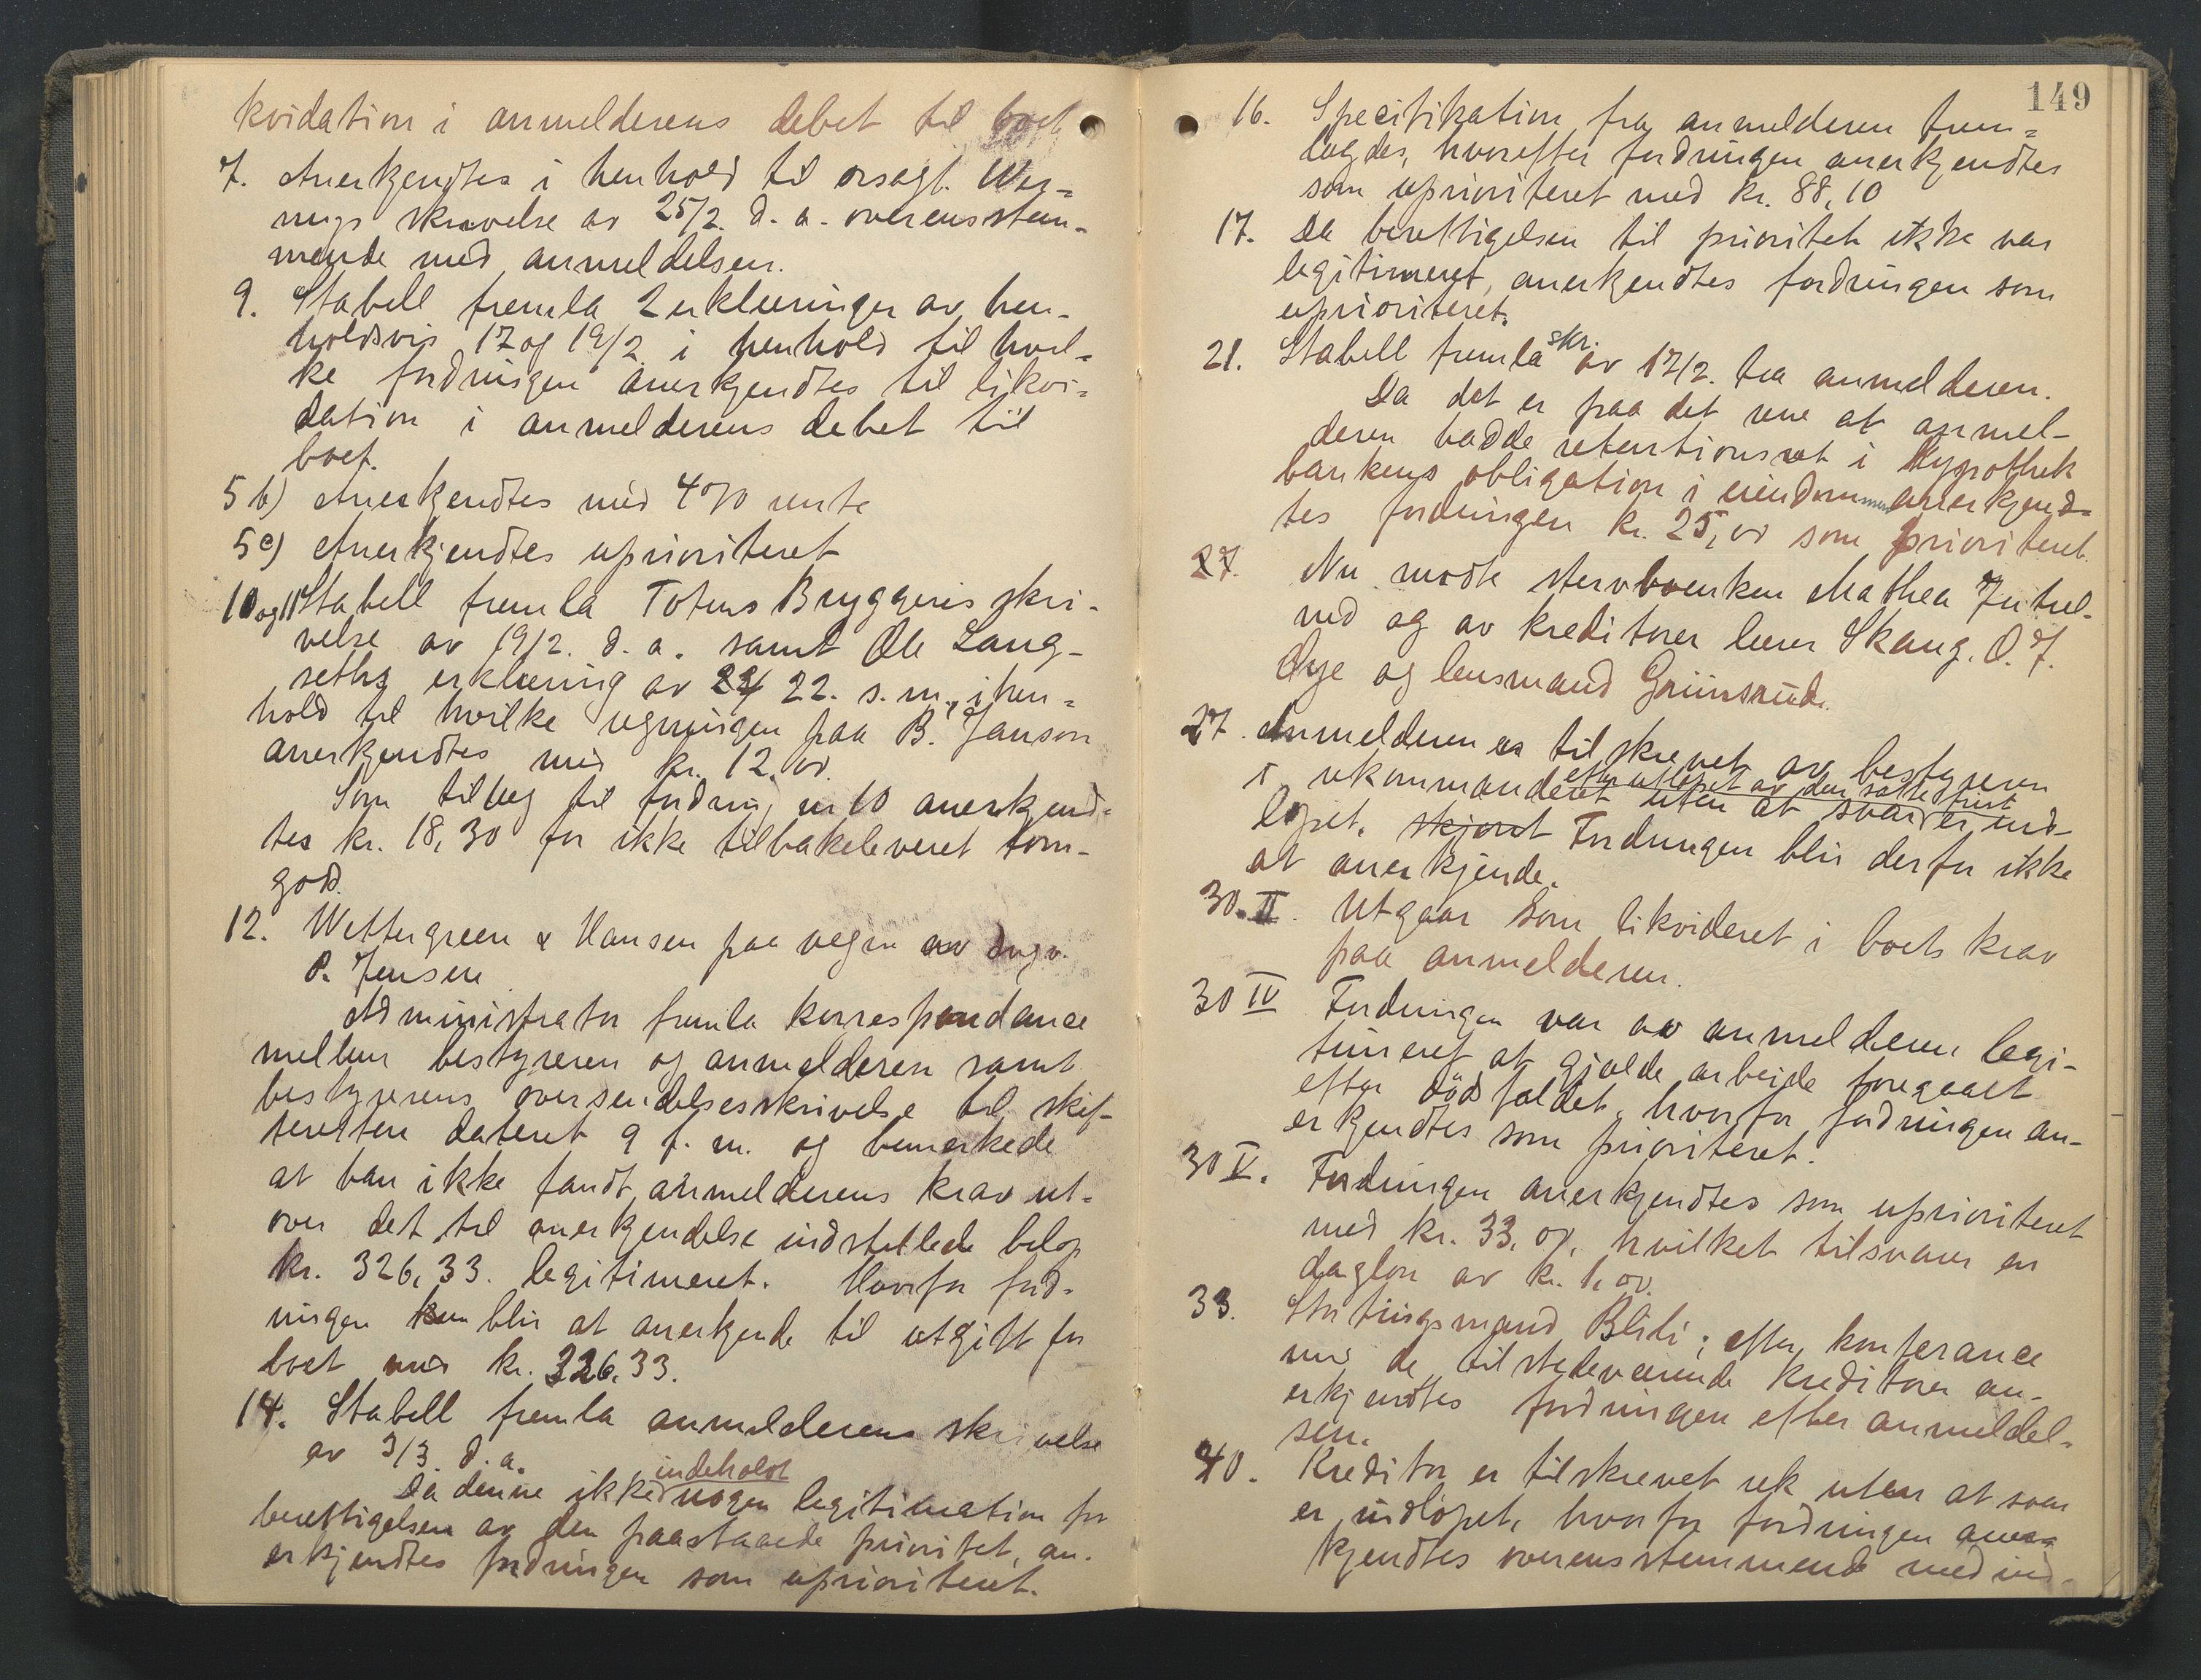 kvidation i anmelderens debet til boet
7. Anerkjendtes i henhold til orsagf. Wer-
nigs skrivelse av 25/2. d. a. overensstem-
mende med anmeldelsen.
9. Stabell fremla 2 erklæringer av hen-
holdsvis 17 og 19/2 i henhold til hvil-
ke fordringen anerkjendtes til likvi-
dation i anmelderens debet til
boet.
5 b) Anerkjendtes med 4% rente
5 c) Anerkjendtes uprioritert
10 og 11 Stabell fremla Totens Bryggeris skri-
velse av 19/2. d. a. samt Ole Lang-
seths erklæring av 22. s. m., i hen-
hold til hvilke regningen paa B. Janson
anerkjendtes med kr. 12,00.
Som tillæg til fordring nr 10 anerkjend-
tes kr. 18,30 for ikke tilbakeleveret tom-
gods.
12. Wettergreen & Hansen paa vegne av Ingv.
P. Jensen
Administrator fremla korrespondance
mellem bestyreren og anmelderen samt
bestyrerens oversendelsesskrivelse til skif-
teretten dateret 9 f. m. og bemerkede
at han ikke fandt anmelderens krav ut-
over det til anerkjendelse indstillede beløp
kr. 326,33. legitimeret. Hvorfor ford-
ringen kun blir at anerkjende til utgift for
boet med kr. 326,33.
14. Stabell fremla anmelderens skrivelse
av 3/3. d. a.
Da denne ikke indeholdt nogen legitimation for
berettigelsen av den paastaaede prioritet, an-
erkjendtes fordringen som uprioriteret.
149
16. Specifikation fra anmelderen frem-
lagdes, hvorefter fordringen anerkjendtes
som uprioriteret med kr. 88,10
17. Da berettigelsen til prioritet ikke var
legitimeret, anerkjendtes fordringen som
uprioriteret.
21. Stabell fremla skr. av 17/2. fra anmelderen.
Da det er paa det rene at anmel-
deren hadde retentionsret i Hypothek
bankens obligation i eiendommen anerkjend-
tes fordringen kr. 25,00 som prioriteret.
27. Nu møtte stervboenken Mathea
ned og av kreditorer lærer Skaug, O. J.
Øye og lensmand Grünsrud.
27. Anmelderen er tilskrevet av bestyreren
i rekommanderet uten at svar efter utløpet av den satte frist er ind-
løpet. skjønt Fordringen blir derfor ikke
at anerkjende.
30. II. Utgaar som likvideret i boets krav
paa anmelderen.
30 IV Fordringen var av anmelderen legi-
timeret at gjælde arbeide foregaaet
efter dödsfaldet, hvorfor fordringen an-
erkjendtes som prioriteret.
30 V. Fordringen anerkjendtes som uprioriteret
med kr. 33,00, hvilket tilsvarer en
daglön av kr. 1,00.
33. Stortingsmand Blili; efter konferance
med de tilstedeværende kreditorer an-
erkjendtes fordringen efter anmeldel-
sen.
40. Kreditor er tilskrevet rek uten at svar
er indløpet, hvorfor fordringen aner-
kjendtes overensstemmende med ind-